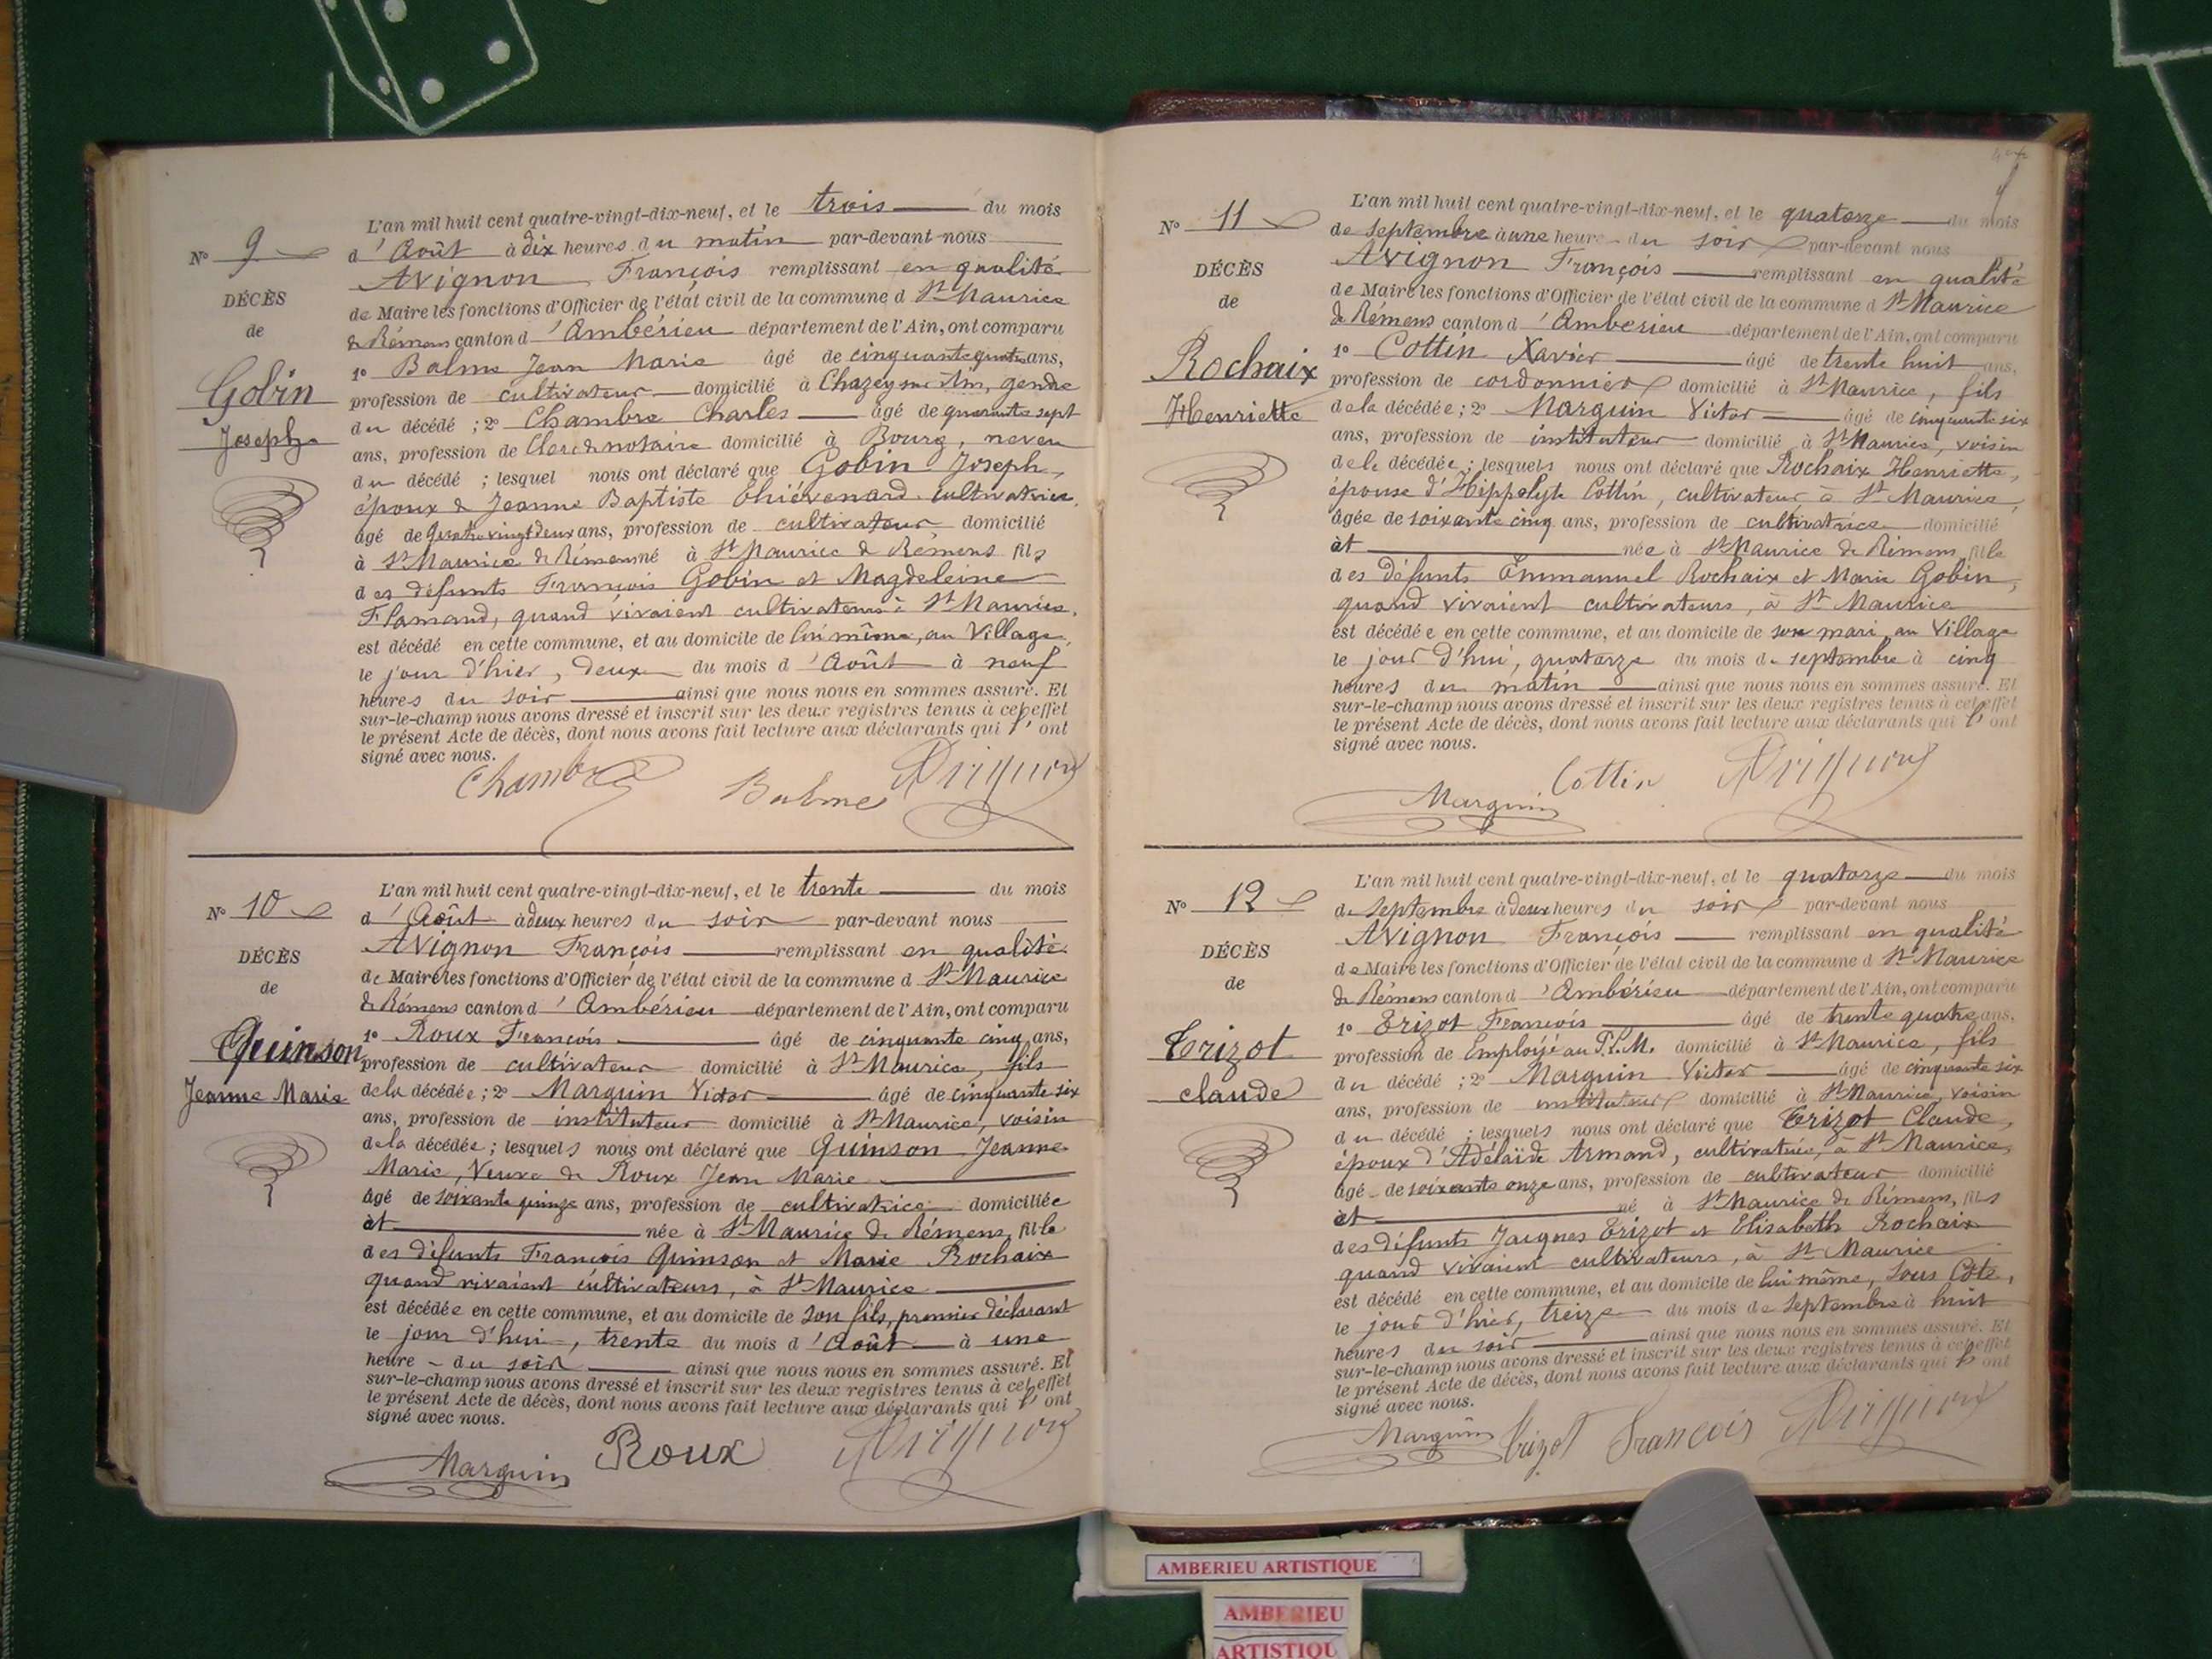 N° 9
DÉCÈS
de
Gobin
Joseph
L'an mil huit cent quatre-vingt-dix-neuf, et le trois du mois
d'Août à dix heures du matin par-devant nous
Avignon François remplissant en qualité
de Maire les fonctions d'Officier de l'état civil de la commune d St Maurice
de Rémens canton d'Ambérieu département de l'Ain, ont comparu
1° Balme Jean Marie âgé de cinquante quatre ans,
profession de cultivateur domicilié à Chazey sur Ain, gendre
du décédé ; 2° Chambre Charles âgé de quarante sept
ans, profession de Clerc de notaire domicilié à Bourg, neveu
du décédé ; lesquel nous ont déclaré que Gobin Joseph,
époux de Jeanne Baptiste Thiévenard cultivatrice,
âgé de quatre vingt deux ans, profession de cultivateur domicilié
à St Maurice de Rémens né à St Maurice de Rémens fils
des défunts François Gobin et Magdeleine
Flamand, quand vivaient cultivateurs à St Maurice,
est décédé en cette commune, et au domicile de lui même, au Village,
le jour d'hier, deux du mois d'Août à neuf
heures du soir ainsi que nous nous en sommes assuré. Et
sur-le-champ nous avons dressé et inscrit sur les deux registres tenus à cet effet
le présent Acte de décès, dont nous avons fait lecture aux déclarants qui l'ont
signé avec nous.
Chambre Balme Avignon
N° 10
DÉCÈS
de
Quinson
Jeanne Marie
L'an mil huit cent quatre-vingt-dix-neuf, et le trente du mois
d'Août à deux heures du soir par-devant nous
Avignon François remplissant en qualité
de Maire les fonctions d'Officier de l'état civil de la commune d St Maurice
de Rémens canton d'Ambérieu département de l'Ain, ont comparu
1° Roux François âgé de cinquante cinq ans,
profession de cultivateur domicilié à St Maurice, fils
de la décédée ; 2° Marguin Victor âgé de cinquante six
ans, profession de instituteur domicilié à St Maurice, voisin
de la décédée ; lesquels nous ont déclaré que Quinson Jeanne
Marie, Veuve de Roux Jean Marie
âgé de soixante quinze ans, profession de cultivatrice domiciliée
àt née à St Maurice de Rémens, fille
des défunts François Quinson et Marie Rochaix
quand vivaient cultivateurs, à St Maurice
est décédée en cette commune, et au domicile de son fils, premier déclarant
le jour d'hui, trente du mois d'Août à une
heure du soir ainsi que nous nous en sommes assuré. Et
sur-le-champ nous avons dressé et inscrit sur les deux registres tenus à cet effet
le présent Acte de décès, dont nous avons fait lecture aux déclarants qui l'ont
signé avec nous.
Marguin Roux Avignon
N° 11
DÉCÈS
de
Rochaix
Henriette
L'an mil huit cent quatre-vingt-dix-neuf, et le quatorze du mois
de Septembre à une heure du soir par-devant nous
Avignon François remplissant en qualité
de Maire les fonctions d'Officier de l'état civil de la commune d St Maurice
de Rémens canton d'Ambérieu département de l'Ain, ont comparu
1° Cottin Xavier âgé de trente huit ans,
profession de cordonnier domicilié à St Maurice, fils
de la décédée ; 2° Marguin Victor âgé de cinquante six
ans, profession de instituteur domicilié à St Maurice, voisin
de la décédée ; lesquels nous ont déclaré que Rochaix Henriette,
épouse d'Hippolyte Cottin, cultivateur à St Maurice,
âgée de soixante cinq ans, profession de cultivatrice domicilié
àt née à St Maurice de Rémens, fille
des défunts Emmanuel Rochaix et Marie Gobin,
quand vivaient cultivateurs, à St Maurice
est décédée en cette commune, et au domicile de son mari au Village
le jour d'hui, quatorze du mois de septembre à cinq
heures du matin ainsi que nous nous en sommes assuré. Et
sur-le-champ nous avons dressé et inscrit sur les deux registres tenus à cet effet
le présent Acte de décès, dont nous avons fait lecture aux déclarants qui l'ont
signé avec nous.
Marguin Cottin Avignon
N° 12
DÉCÈS
de
Trizot
claude
L'an mil huit cent quatre-vingt-dix-neuf, et le quatorze du mois
de Septembre à deux heures du soir par-devant nous
Avignon François remplissant en qualité
de Maire les fonctions d'Officier de l'état civil de la commune d St Maurice
de Rémens canton d'Ambérieu département de l'Ain, ont comparu
1° Trizot François âgé de trente quatre ans,
profession de Employé au P.L.M. domicilié à St Maurice, fils
du décédé ; 2° Marguin Victor âgé de cinquante six
ans, profession de instituteur domicilié à St Maurice, voisin
du décédé ; lesquels nous ont déclaré que Trizot Claude,
époux d'Adélaïde Armand, cultivatrice, à St Maurice,
âgé de soixante onze ans, profession de cultivateur domicilié
àt né à St Maurice de Rémens, fils
des défunts Jacques Trizot et Elisabeth Rochaix
quand vivaient cultivateurs, à St Maurice
est décédé en cette commune, et au domicile de lui même, Sous Côte,
le jour d'hier, treize du mois de Septembre à huit
heures du soir ainsi que nous nous en sommes assuré. Et
sur-le-champ nous avons dressé et inscrit sur les deux registres tenus à cet effet
le présent Acte de décès, dont nous avons fait lecture aux déclarants qui l'ont
signé avec nous.
Marguin Trizot François Avignon
AMBERIEU ARTISTIQUE
AMBERIEU
ARTISTIQU